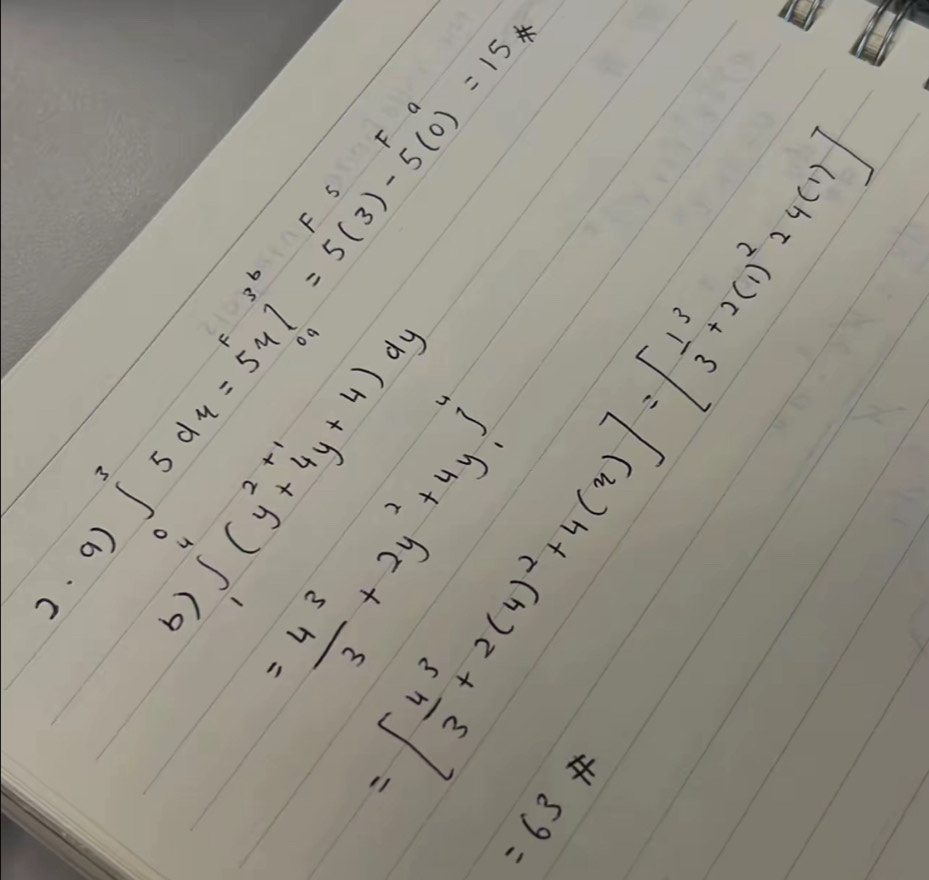 2. a) ∫₀³ 5 dx = 5x]₀ₐ³ᵇ = 5(3) - 5(0) = 15 #
F F 5 F a
b) ∫₁⁴ (y²⁺¹ + 4y + 4) dy
= 4³/3 + 2y² + 4y]₁⁴
= [4³/3 + 2(4)² + 4(x)] = [1³/3 + 2(1)² 2 4(1)]
= 63 #